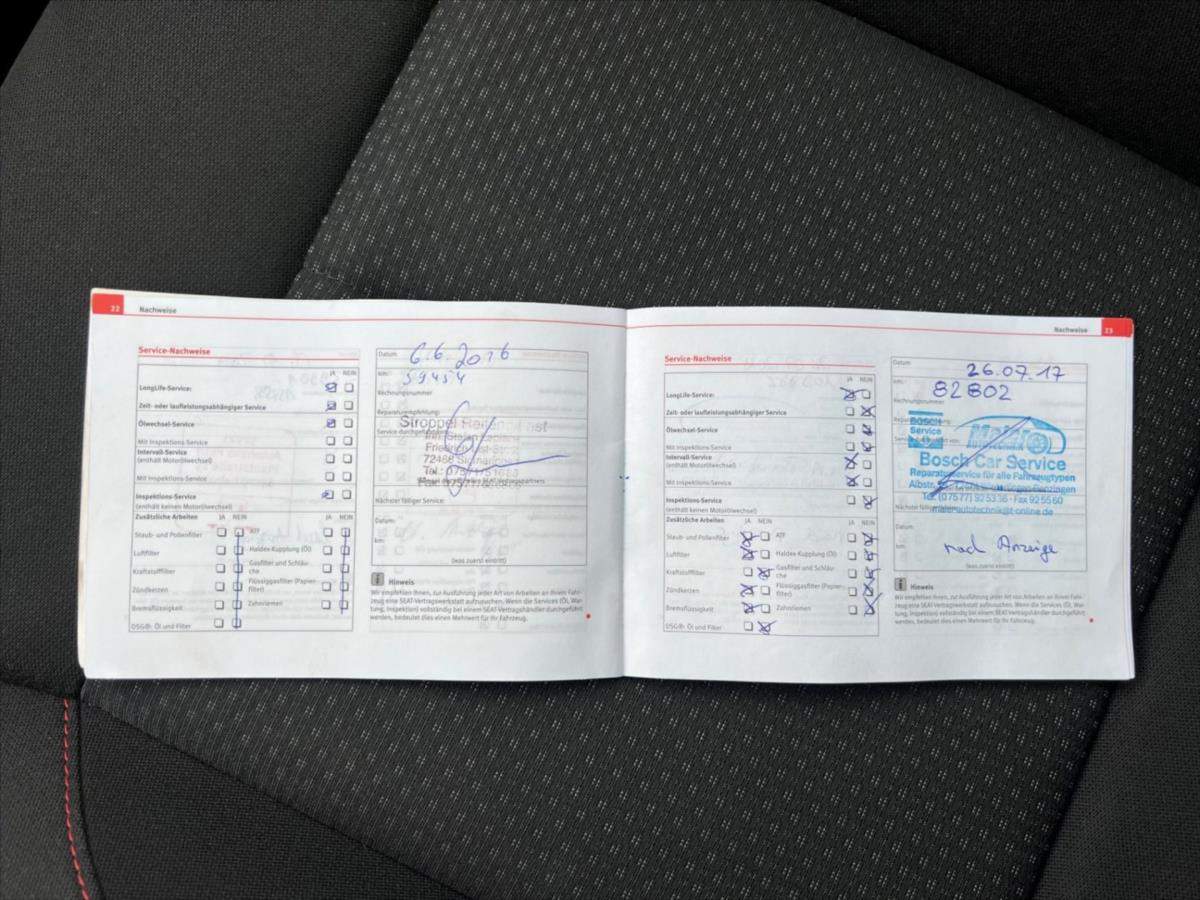 22
Nachweise
Service-Nachweise
JA NEIN
LongLife-Service:
Zeit- oder laufleistungsabhängiger Service
Ölwechsel-Service
Mit Inspektions-Service
Intervall-Service
(enthält Motorölwechsel)
Mit Inspektions-Service
Inspektions-Service
(enthält keinen Motorölwechsel)
Zusätzliche Arbeiten JA NEIN JA NEIN
Staub- und Pollenfilter ATF
Luftfilter Haldex-Kupplung (Öl)
Kraftstofffilter Gasfilter und Schläu-
che
Zündkerzen Flüssiggasfilter (Papier-
filter)
Bremsflüssigkeit Zahnriemen
DSG®: Öl und Filter
Datum: 6.6.2016
km: 59454
Rechnungsnummer
Reparaturempfehlung:
Stroppel
Service durchgeführt
72488
Tel.:
Fax:
Nächster fälliger Service:
Datum:
km:
(was zuerst eintritt)
Hinweis
Wir empfehlen Ihnen, zur Ausführung jeder Art von Arbeiten an Ihrem Fahr-
zeug eine SEAT-Vertragswerkstatt aufzusuchen. Wenn die Services (Öl, War-
tung, Inspektion) vollständig bei einem SEAT-Vertragshändler durchgeführt
werden, bedeutet dies einen Mehrwert für Ihr Fahrzeug.
Nachweise
23
Service-Nachweise
JA NEIN
LongLife-Service:
Zeit- oder laufleistungsabhängiger Service
Ölwechsel-Service
Mit Inspektions-Service
Intervall-Service
(enthält Motorölwechsel)
Mit Inspektions-Service
Inspektions-Service
(enthält keinen Motorölwechsel)
Zusätzliche Arbeiten JA NEIN JA NEIN
Staub- und Pollenfilter ATF
Luftfilter Haldex-Kupplung (Öl)
Kraftstofffilter Gasfilter und Schläu-
che
Zündkerzen Flüssiggasfilter (Papier-
filter)
Bremsflüssigkeit Zahnriemen
DSG®: Öl und Filter
Datum: 26.07.17
km: 82802
Rechnungsnummer
BOSCH
Service
Bosch Car Service
Reparaturservice für alle Fahrzeugtypen
Tel. (07577) 925536 · Fax 925560
Datum:
km: nach Anzeige
(was zuerst eintritt)
Hinweis
Wir empfehlen Ihnen, zur Ausführung jeder Art von Arbeiten an Ihrem Fahr-
zeug eine SEAT-Vertragswerkstatt aufzusuchen. Wenn die Services (Öl, War-
tung, Inspektion) vollständig bei einem SEAT-Vertragshändler durchgeführt
werden, bedeutet dies einen Mehrwert für Ihr Fahrzeug.